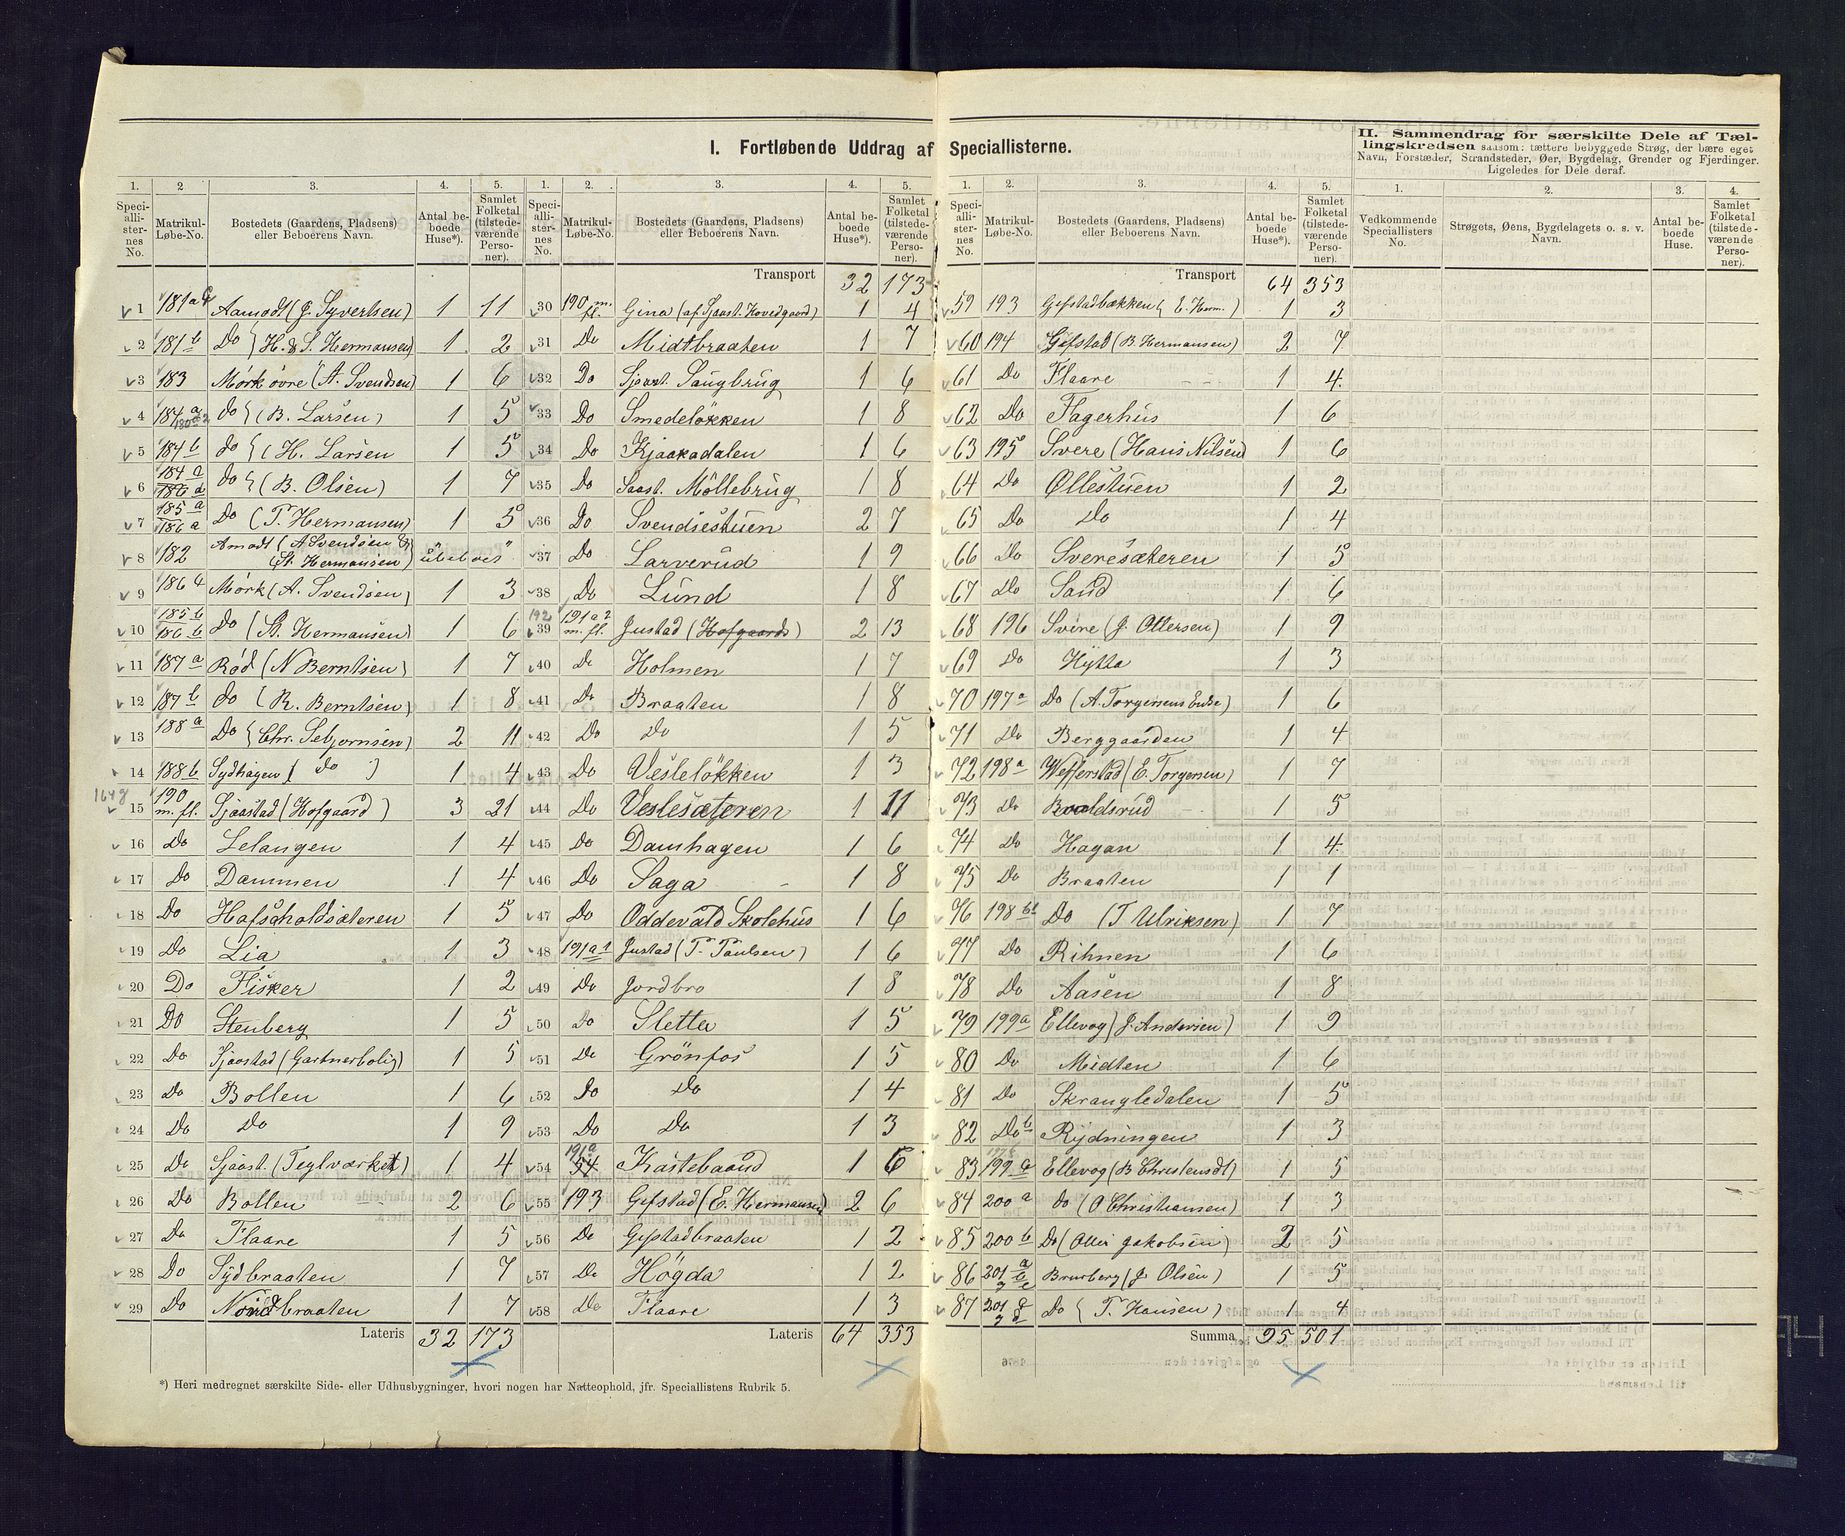 I. Fortløbende Uddrag af Speciallisterne.
II. Sammendrag for særskilte Dele af Tællingskredsen saasom: tættere bebyggede Strøg, der bære eget
Navn, Forstæder, Strandsteder, Øer, Bygdelag, Grender og Fjerdinger.
Ligeledes for Dele deraf.
1. 2 3. 4. 5.
Speciallisternes No. Matrikul-Løbe-No. Bostedets (Gaardens, Pladsens) eller Beboerens Navn. Antal beboede Huse*). Samlet Folketal (tilstedeværende Personer).
1 181a Aamodt (J. Syvertsen) 1 11
2 181b Do (H. & S. Hermansen) 1 2
3 183 Mørk øvre (A. Svendsen) 1 6
4 184a do (B. Larsen) 1 5
5 184b do (H. Larsen 1 5
6 184a 186d do (B. Olsen) 1 7
7 185a 186a Do (T. Hermansen) 1 5
8 182 Amodt (A. Svendsen & St. Hermansen) ubeboet
9 186 4 Mørk (A. Svendsen) 1 3
10 185b 186b Do (St. Hermansen) 1 6
11 187a Rød (N Berntsen) 1 7
12 187b do (R. Berntsen) 1 8
13 188a Do (Chr. Sebjornsen) 2 11
14 188b Sydhagen ( do ) 1 4
15 190 m. fl. Sjaastad (Hofgaard) 3 21
16 Do Lelangen 1 4
17 Do Dammen 1 4
18 Do Hafsaholdsæteren 1 5
19 Do Lia 1 3
20 Do Fisker 1 2
21 Do Stenberg 1 5
22 Do Sjaastad (Gartnerbolig) 1 5
23 Do Bollen 1 6
24 Do Do 1 9
25 Do Sjaast. (Teglværket) 1 4
26 Do Bollen 2 6
27 Do Flaare 1 5
28 Do Sydbraaten 1 7
29 Do Nordbraaten 1 7
Lateris 32 173
1. 2. 3. 4. 5.
Speciallisternes No. Matrikul-Løbe-No. Bostedets (Gaardens, Pladsens) eller Beboerens Navn. Antal beboede Huse*). Samlet Folketal (tilstedeværende Personer).
Transport 32 173
30 190 m. fl. Gina (af Sjaast. Hovedgaard) 1 4
31 Do Midtbraaten 1 7
32 Do Sjaast. Saugbrug 1 6
33 Do Smedeløkken 1 8
34 Do Kjaakadalen 1 6
35 Do Saast. Möllebrug 1 8
36 Do Svendsestuen 2 7
37 Do Larverud 1 9
38 Do Lund 1 8
39 191a2 m. fl. Justad (Hofgaards) 2 13
40 Do Holmen 1 7
41 Do Braaten 1 8
42 Do Do 1 5
43 Do Vesleløkken 1 3
44 Do Veslesæteren 1 11
45 Do Damhagen 1 6
46 Do Saga 1 8
47 Do Oddevald Skolehus 1 6
48 191a1 Justad (T. Paulsen) 1 6
49 Do Jordbro 1 8
50 Do Sletta 1 5
51 Do Grönfos 1 5
52 Do Do 1 4
53 Do Do 1 3
54 191a Kastebaand 1 6
55 193 Gifstad (E. Hermansen) 2 6
56 Do Gifstadbraaten 1 2
57 Do Högda 1 2
58 Do Flaare 1 3
Lateris 64 353
1. 2. 3. 4. 5.
Speciallisternes No. Matrikul-Løbe-No. Bostedets (Gaardens, Pladsens) eller Beboerens Navn. Antal beboede Huse*). Samlet Folketal (tilstedeværende Personer).
Transport 64 353
59 193 Gifstadbækken (E. Herm.) 1 3
60 194 Gifstad (B. Hermansen) 2 7
61 Do Flaare 1 4
62 Do Fagerhus 1 6
63 195 Svere (Hans Nilsen) 1 6
64 Do Øllestuen 1 2
65 Do Do 1 4
66 Do Sveresæteren 1 5
67 Do Sand 1 6
68 196 Svere (J. Ottersen) 1 9
69 Do Hytta 1 3
70 197a Do (A. Torgersens Enke) 1 6
71 Do Berggaarden 1 4
72 198a Wefferstad (E. Torgersen) 1 7
73 Do Boaldsrud 1 5
74 Do Hagan 1 4
75 Do Braaten 1 1
76 198b1 Do (T Ulriksen) 1 7
77 Do Rihnen 1 6
78 Do Aasen 1 8
79 199a Ellevog (J. Andersen) 1 9
80 Do Midten 1 6
81 Do Skrangledalen 1 5
82 Do b Rydningen 1 3
83 199 Ellevog (B Christensdt) 1 5
84 200a do (O Christiansen) 1 3
85 200b Do (Ollei Jakobsen) 2 5
86 201 Bruberg (J. Olsen) 1 5
87 201 Do (T. Hansen) 1 4
Summa 95 501
1. 2. 3. 4.
Vedkommende Speciallisters No. Strøgets, Øens, Bygdelagets o. s. v. Navn. Antal beboede Huse. Samlet Folketal (tilstedeværende Personer).
*) Heri medregnet særskilte Side- eller Udhusbygninger, hvori nogen har Natteophold, jfr. Speciallistens Rubrik 5.